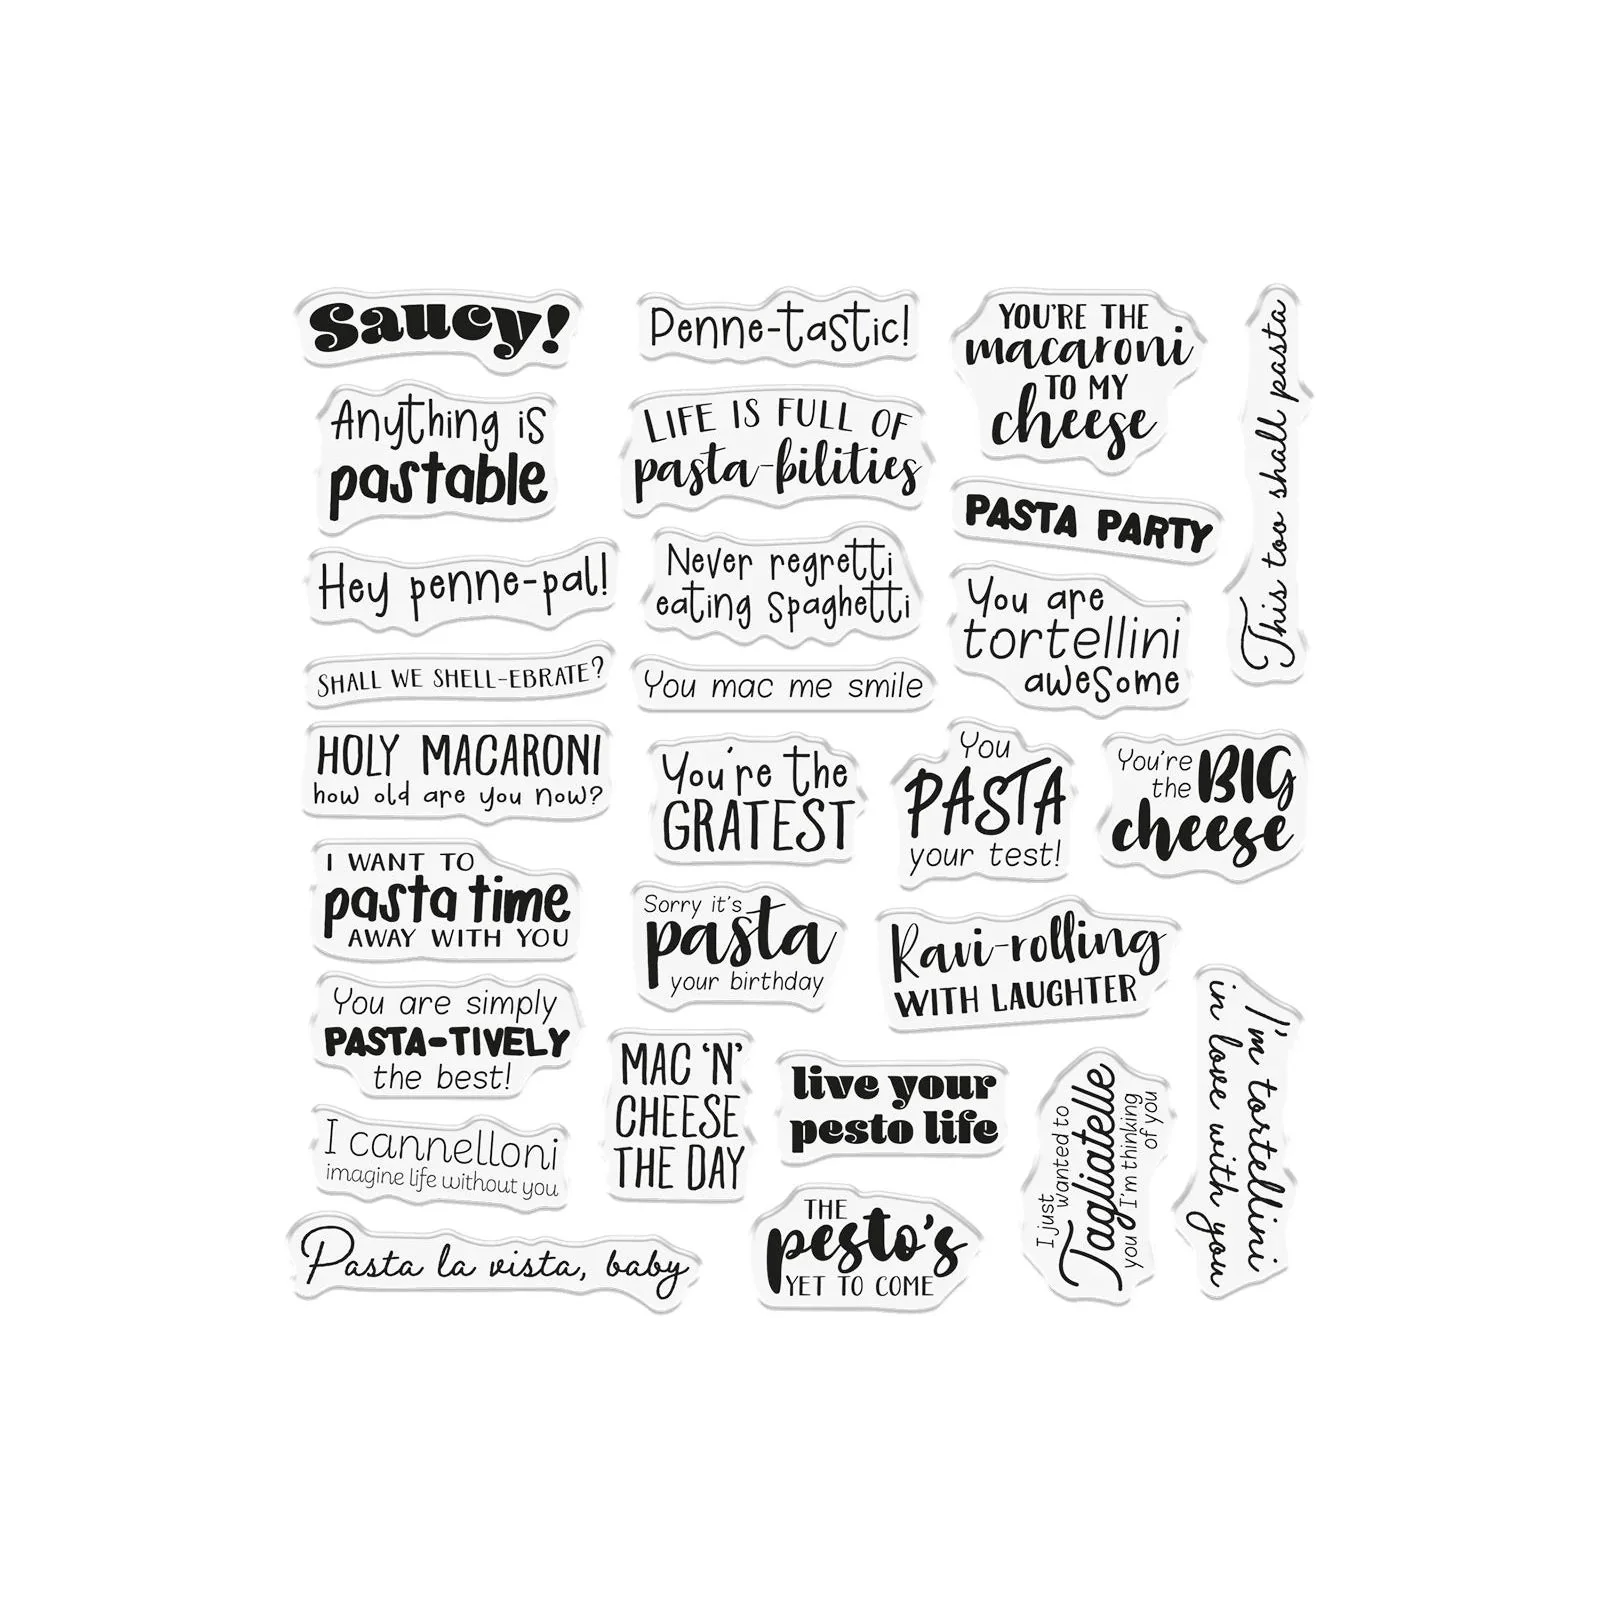 Saucy!
Penne-tastic!
YOU'RE THE
macaroni
TO MY
cheese
This too shall pasta
Anything is
pastable
LIFE IS FULL OF
pasta-bilities
PASTA PARTY
Hey penne-pal!
Never regretti
eating spaghetti
You are
tortellini
awesome
SHALL WE SHELL-EBRATE?
You mac me smile
HOLY MACARONI
how old are you now?
You're the
GRATEST
You
PASTA
your test!
You're
the BIG
cheese
I WANT TO
pasta time
AWAY WITH YOU
Sorry it's
pasta
your birthday
Ravi-rolling
WITH LAUGHTER
I'm tortellini
in love with you
You are simply
PASTA-TIVELY
the best!
MAC 'N'
CHEESE
THE DAY
live your
pesto life
I just
wanted to
Tagliatelle
you I'm thinking
of you
I cannelloni
imagine life without you
THE
pesto's
YET TO COME
Pasta la vista, baby